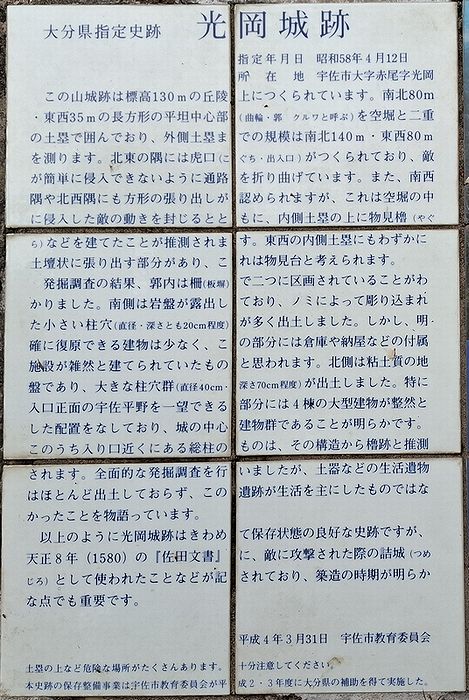 大分県指定史跡 光岡城跡
指定年月日 昭和58年4月12日
所在地 宇佐市大字赤尾字光岡
この山城跡は標高130mの丘陵上につくられています。南北80m
・東西35mの長方形の平坦中心部(曲輪・郭 クルワと呼ぶ)を空堀と二重
の土塁で囲んでおり、外側土塁までの規模は南北140m・東西80m
を測ります。北東の隅には虎口(こぐち・出入口)がつくられており、敵
が簡単に侵入できないように通路を折り曲げています。また、南西
隅や北西隅にも方形の張り出しが認められますが、これは空堀の中
に侵入した敵の動きを封じるとともに、内側土塁の上に物見櫓(やぐ
ら)などを建てたことが推測されます。東西の内側土塁にもわずかに
土壇状に張り出す部分があり、これは物見台と考えられます。
発掘調査の結果、郭内は柵(板塀)で二つに区画されていることがわ
かりました。南側は岩盤が露出しており、ノミによって彫り込まれ
た小さい柱穴(直径・深さとも20cm程度)が多く出土しました。しかし、明
確に復原できる建物は少なく、この部分には倉庫や納屋などの付属
施設が雑然と建てられていたものと思われます。北側は粘土質の地
盤であり、大きな柱穴群(直径40cm・深さ70cm程度)が出土しました。特に
入口正面の宇佐平野を一望できる部分には4棟の大型建物が整然と
した配置をなしており、城の中心建物群であることが明らかです。
このうち入り口近くにある総柱のものは、その構造から櫓跡と推測
されます。全面的な発掘調査を行いましたが、土器などの生活遺物
はほとんど出土しておらず、この遺跡が生活を主にしたものではな
かったことを物語っています。
以上のように光岡城跡はきわめて保存状態の良好な史跡ですが、
天正8年(1580)の『佐田文書』に、敵に攻撃された際の詰城(つめ
じろ)として使われたことなどが記されており、築造の時期が明らか
な点でも重要です。
平成4年3月31日 宇佐市教育委員会
土塁の上など危険な場所がたくさんあります。十分注意してください。
本史跡の保存整備事業は宇佐市教育委員会が平成2・3年度に大分県の補助を得て実施した。